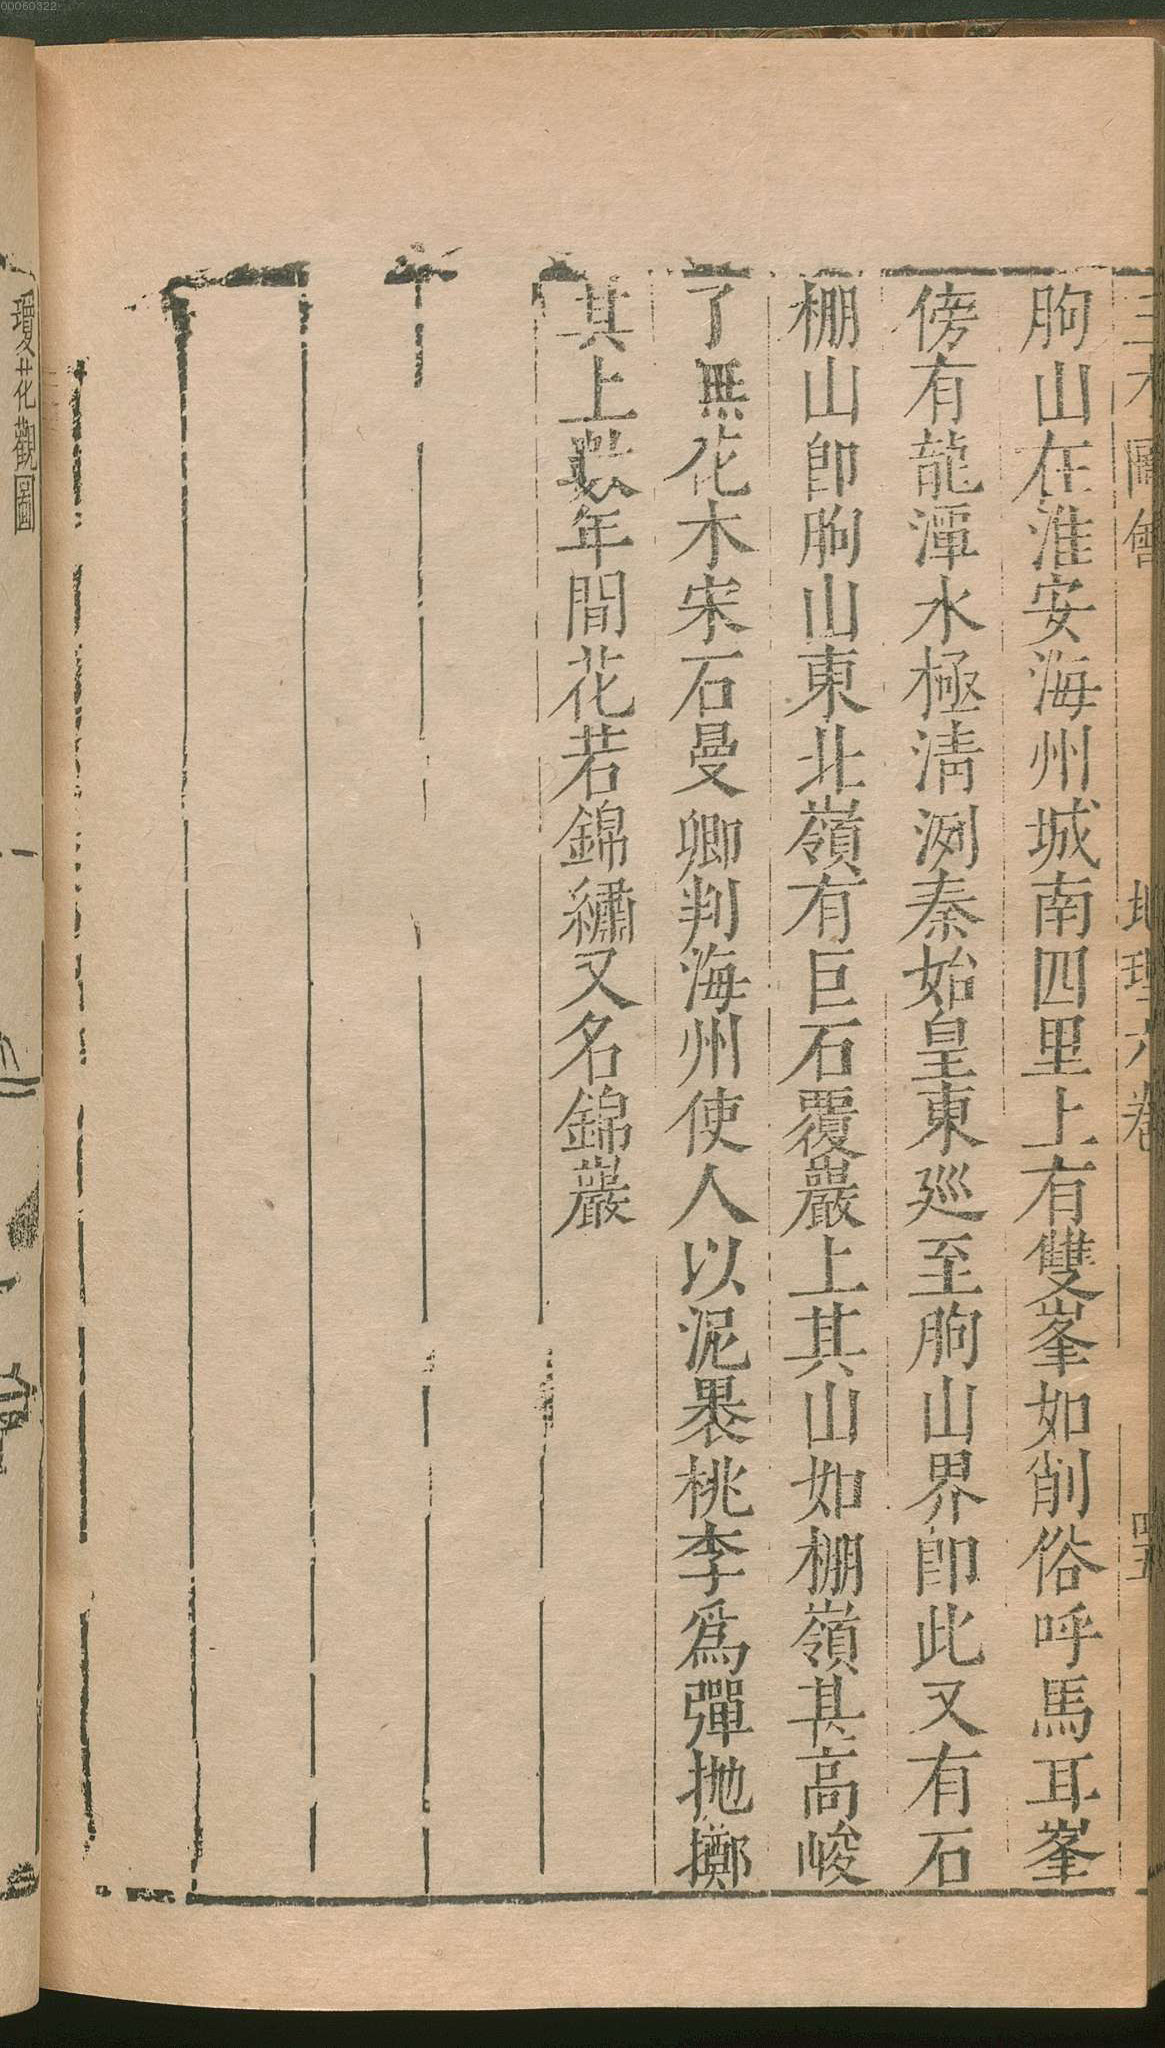 三才圖會 地理六卷 四五
朐山在淮安海州城南四里上有雙峯如削俗呼馬耳峯
傍有龍潭水極淸洌秦始皇東廵至朐山界卽此又有石
棚山卽朐山東北嶺有巨石覆巖上其山如棚嶺甚高峻
了無花木宋石曼卿判海州使人以泥褁桃李爲彈抛擲
其上數年間花若錦繡又名錦巖
瓊花觀圖
00060322